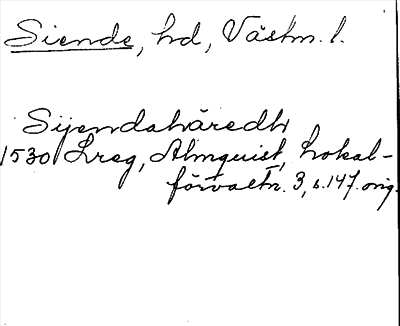 Siende, hd, Västm. l.
Sijendahäredh
1530 Lreg, Almquist, Lokal-
förvaltn. 3, s. 147. orig.